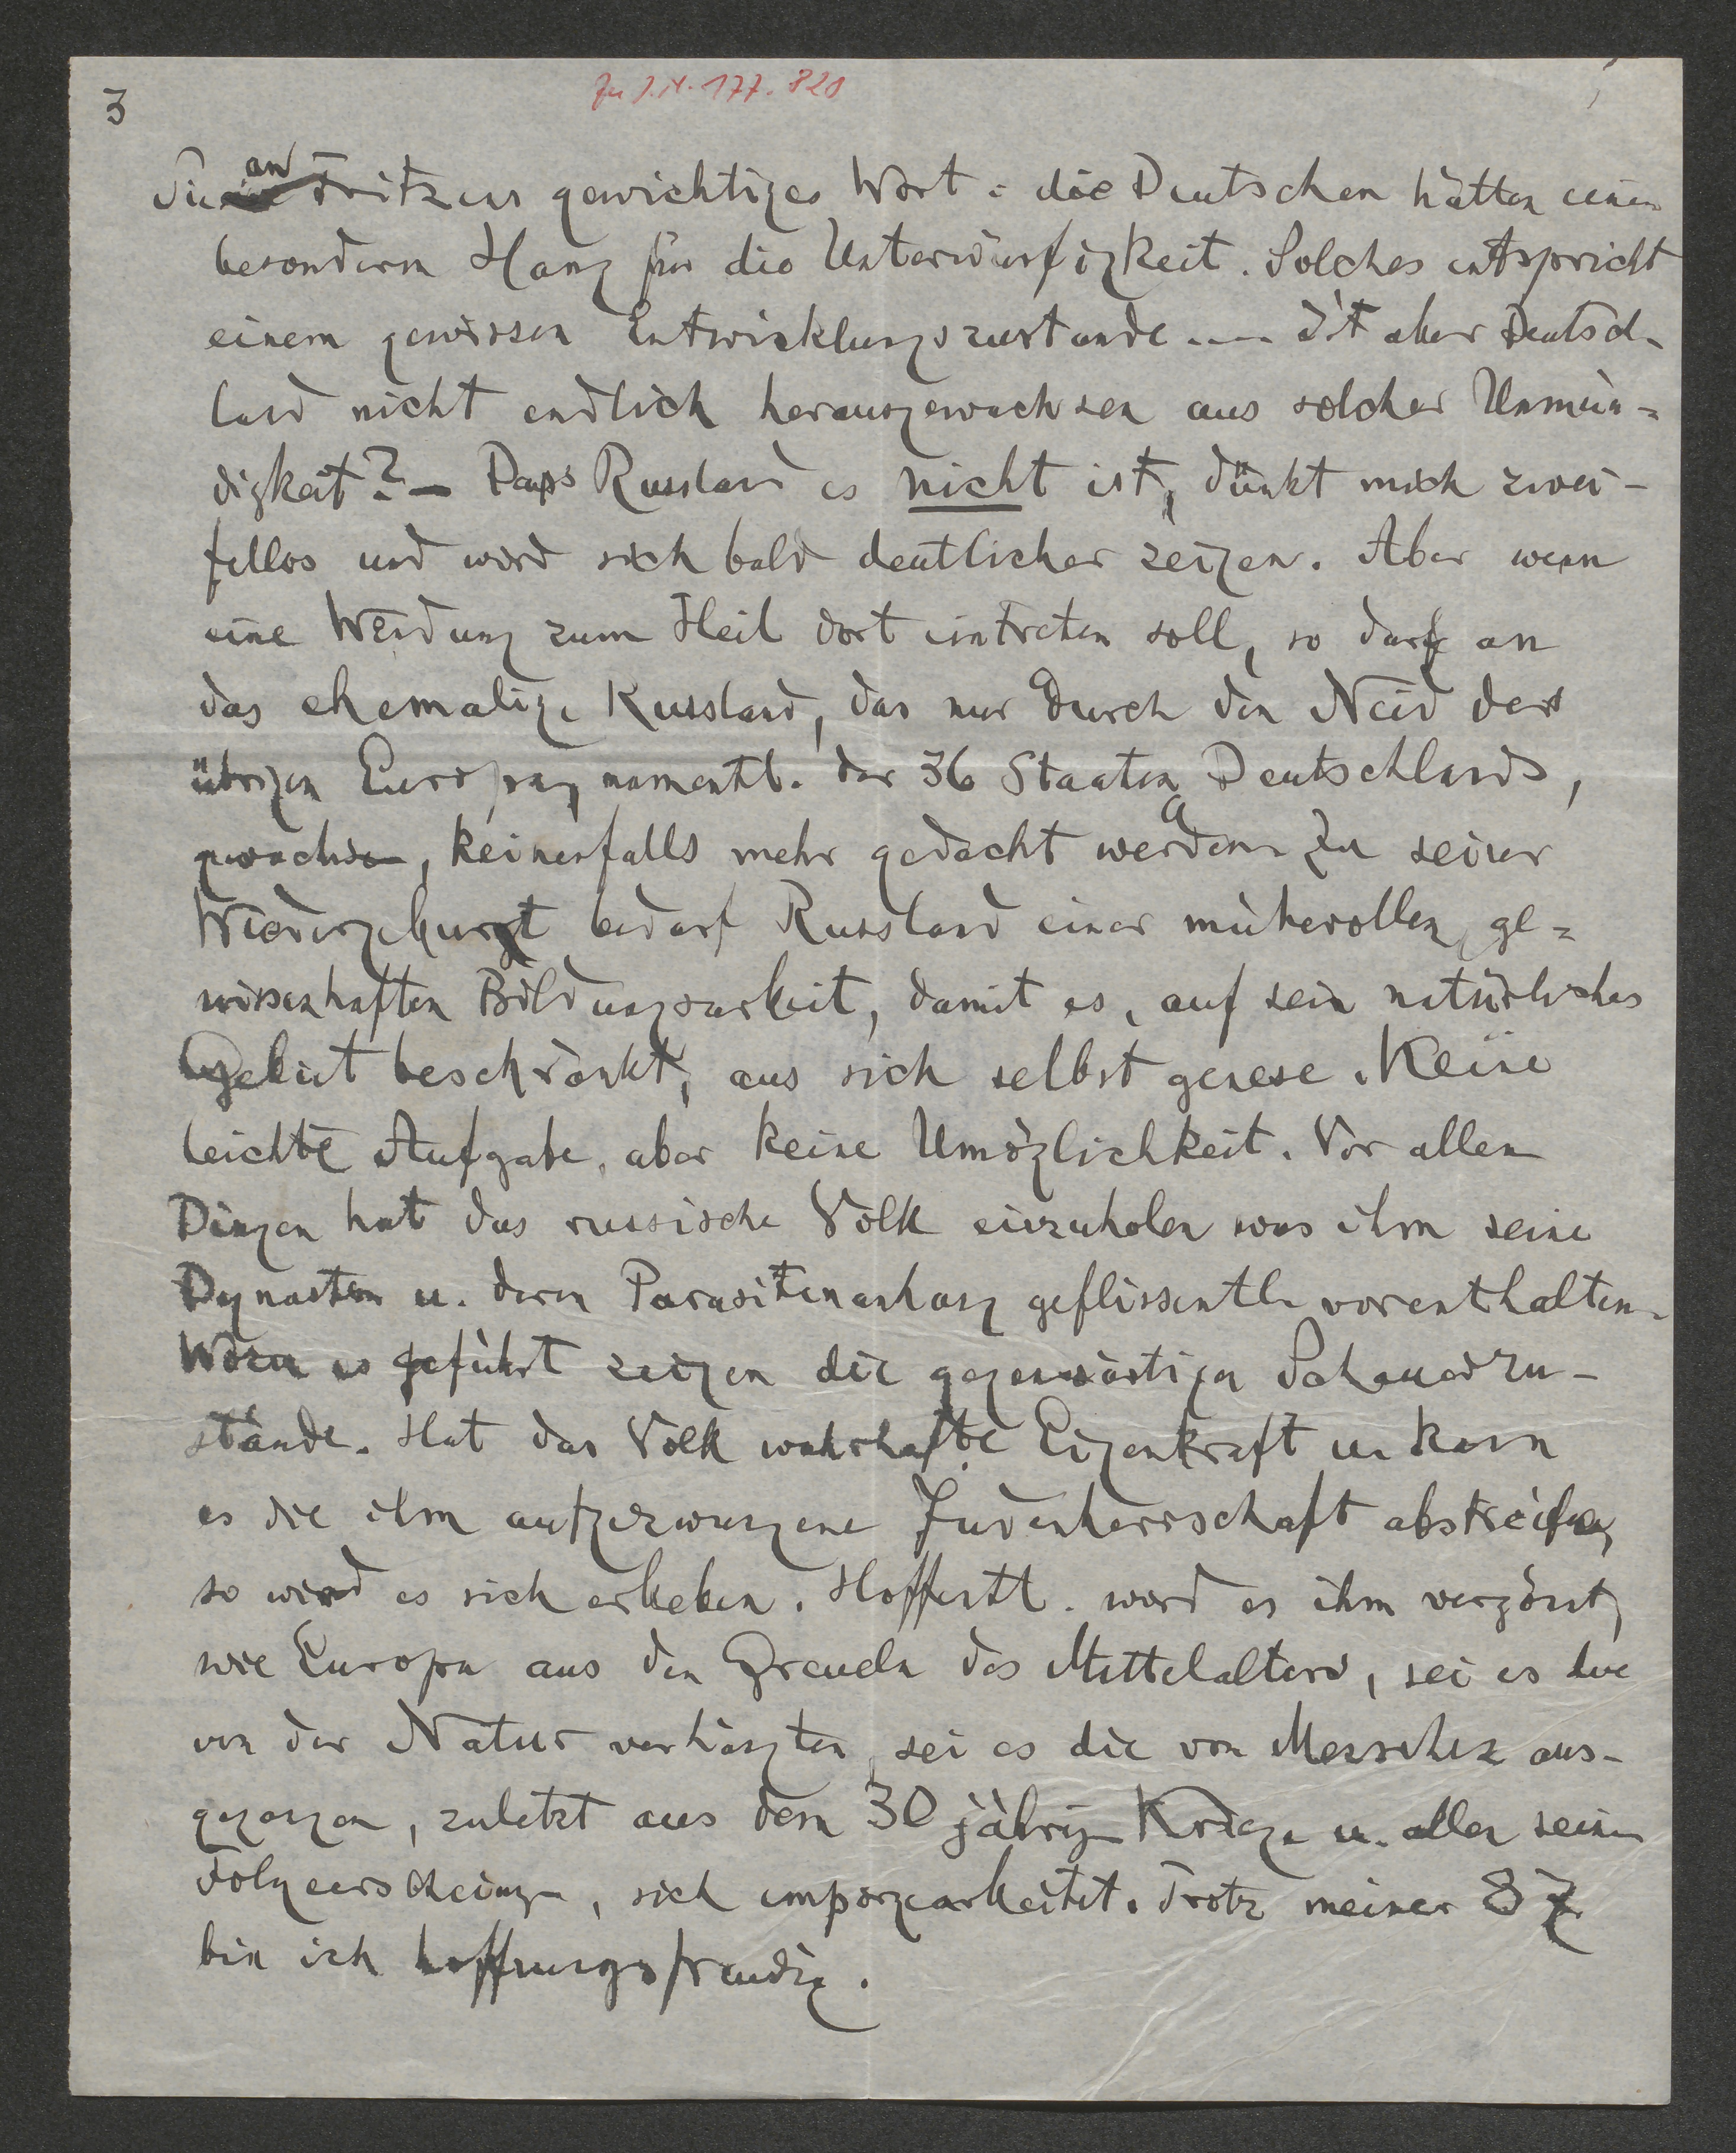 3
Zu I.N. 177.820
Sie an Fritzens gewichtiges Wort: die Deutschen hätten einen
besondern Hang für die Unterwürfigkeit. Solches entspricht
einem gewissen Entwicklungszustande .... ist aber Deutsch-
land nicht endlich herausgewachsen aus solcher Unmün=
digkeit? – Dass Russland es nicht ist, dünkt mich zwei-
fellos und wird sich bald deutlicher zeigen. Aber wenn
eine Wendung zum Heil dort eintreten soll, so darf an
das ehemalige Russland, das nur durch den Neid des
übrigen Europas, namentl. der 36 Staaten Deutschlands,
gewachsen, keinesfalls mehr gedacht werden. Zu seiner
Wiedergeburt bedarf Russland einer mühevollen, ge=
wissenhaften Bildungsarbeit, damit es, auf sein natürliches
Gebiet beschränkt, aus sich selbst genese. Keine
leichte Aufgabe, aber keine Unmöglichkeit. Vor allen
Dingen hat das russische Volk einzuholen was ihm seine
Dynasten u. deren Parasitenanhang geflissentl. vorenthalten.
Wozu es geführt zeigen die gegenwärtigen Schauerzu-
stände. Hat das Volk wahrhafte Eigenkraft u. kann
es die ihm aufgezwungene Judenherrschaft abstreifen,
so wird es sich erheben. Hoffentl. wird es ihm vergönnt,
wie Europa aus den Greueln des Mittelalters, sei es die
von der Natur verhängten, sei es die von Menschen aus-
gegangen, zuletzt aus dem 30 jährig. Kriege u. allen seinen
Folgeerscheinungen, sich emporgearbeitet. Trotz meiner 87
bin ich hoffnungsfreudig.